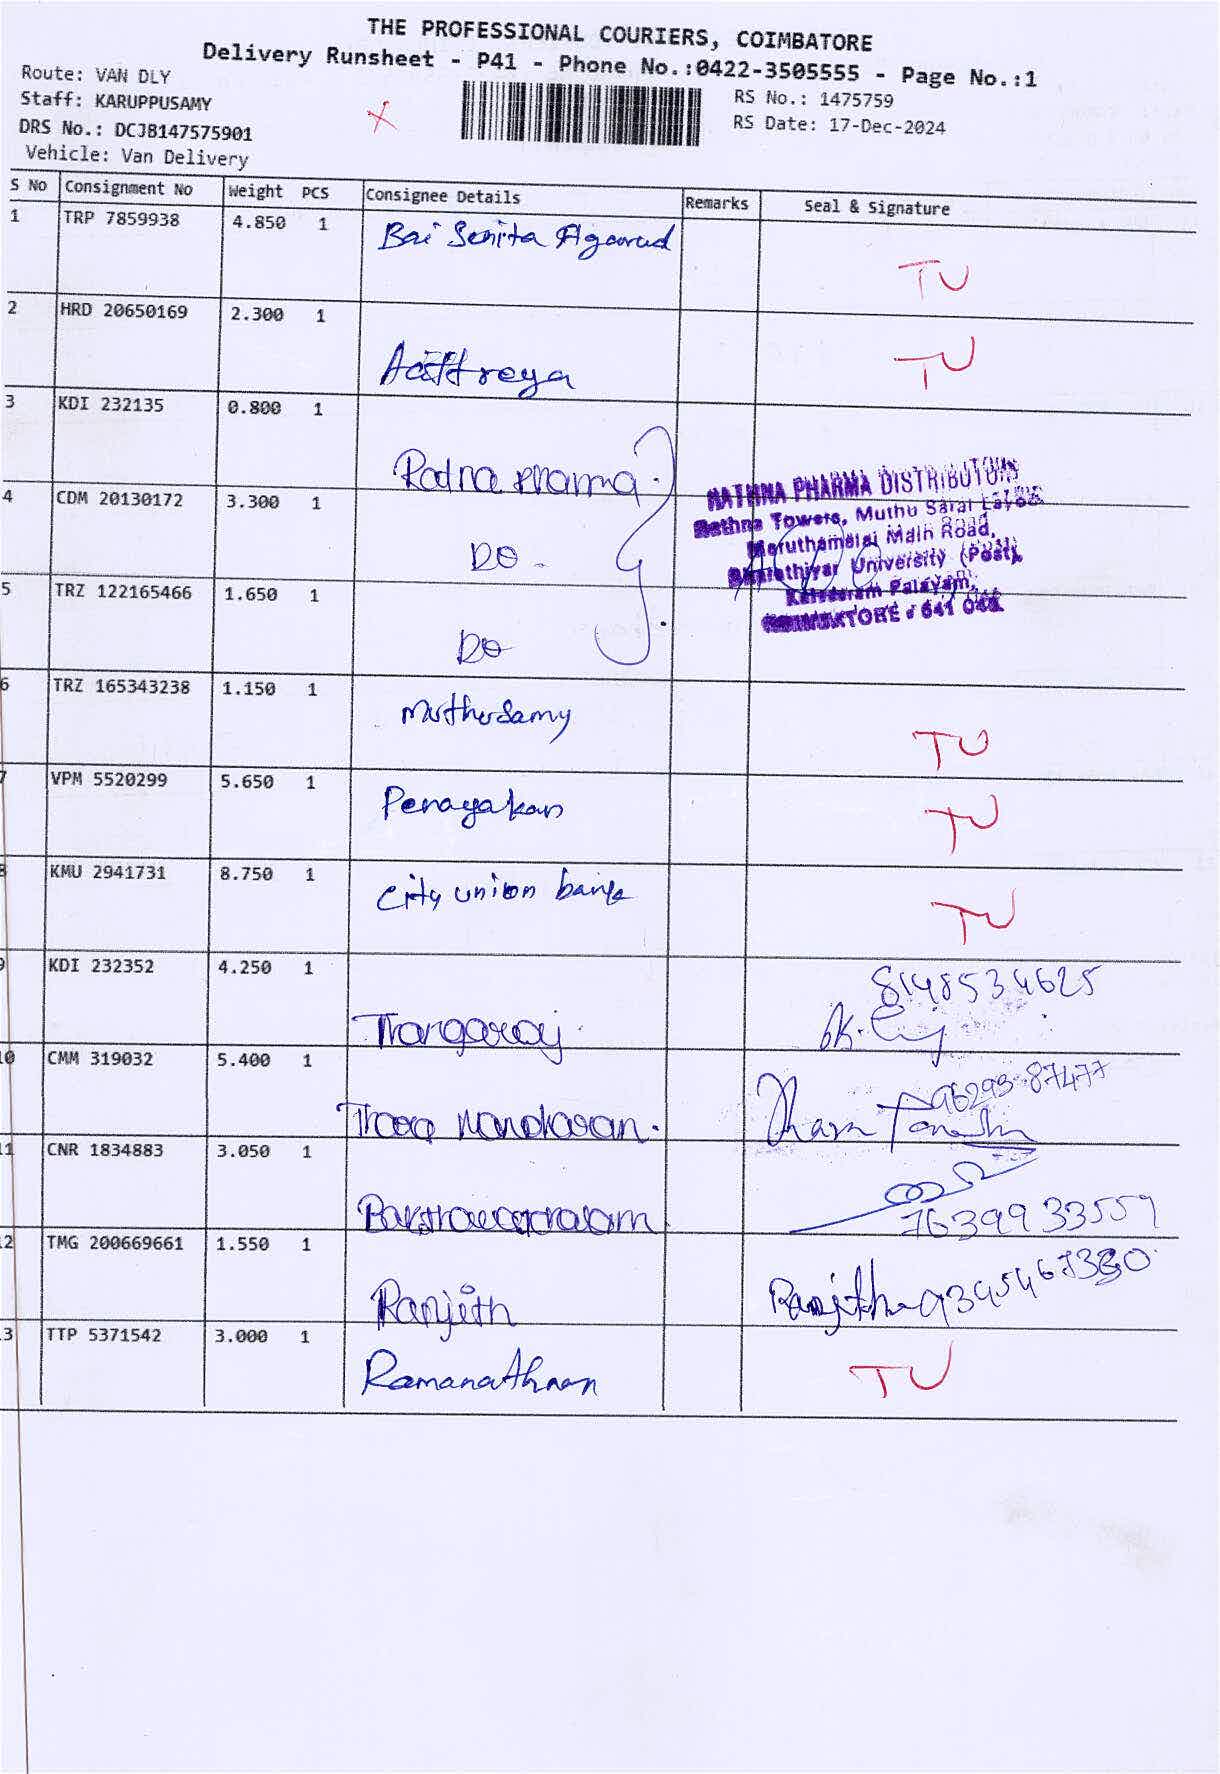 THE PROFESSIONAL COURIERS, COIMBATORE
Delivery Runsheet - P41 - Phone No.:0422-3505555 - Page No.:1
Route: VAN DLY
Staff: KARUPPUSAMY
DRS No.: DCJB147575901
Vehicle: Van Delivery
RS No.: 1475759
RS Date: 17-Dec-2024
S No Consignment No Weight PCS Consignee Details Remarks Seal & Signature
1 TRP 7859938 4.850 1 Bai Senita TU
2 HRD 20650169 2.300 1 TU
3 KDI 232135 0.800 1 Ratna Pharma.
4 CDM 20130172 3.300 1 DO -
5 TRZ 122165466 1.650 1 DO
RATHNA PHARMA DISTRIBUTORS
Rathna Towers, Muthu Sarai Layout
Maruthamalai Main Road,
Bharathiyar University (Post),
Palayam,
COIMBATORE - 641 046
6 TRZ 165343238 1.150 1 Muthusamy TU
7 VPM 5520299 5.650 1 Penayakan TU
8 KMU 2941731 8.750 1 City union bank TU
9 KDI 232352 4.250 1 Thangaraj. 8148534625
10 CMM 319032 5.400 1 96293 87477
11 CNR 1834883 3.050 1 7639933559
12 TMG 200669661 1.550 1 Ranjith Ranjith
13 TTP 5371542 3.000 1 Ramanathan TU